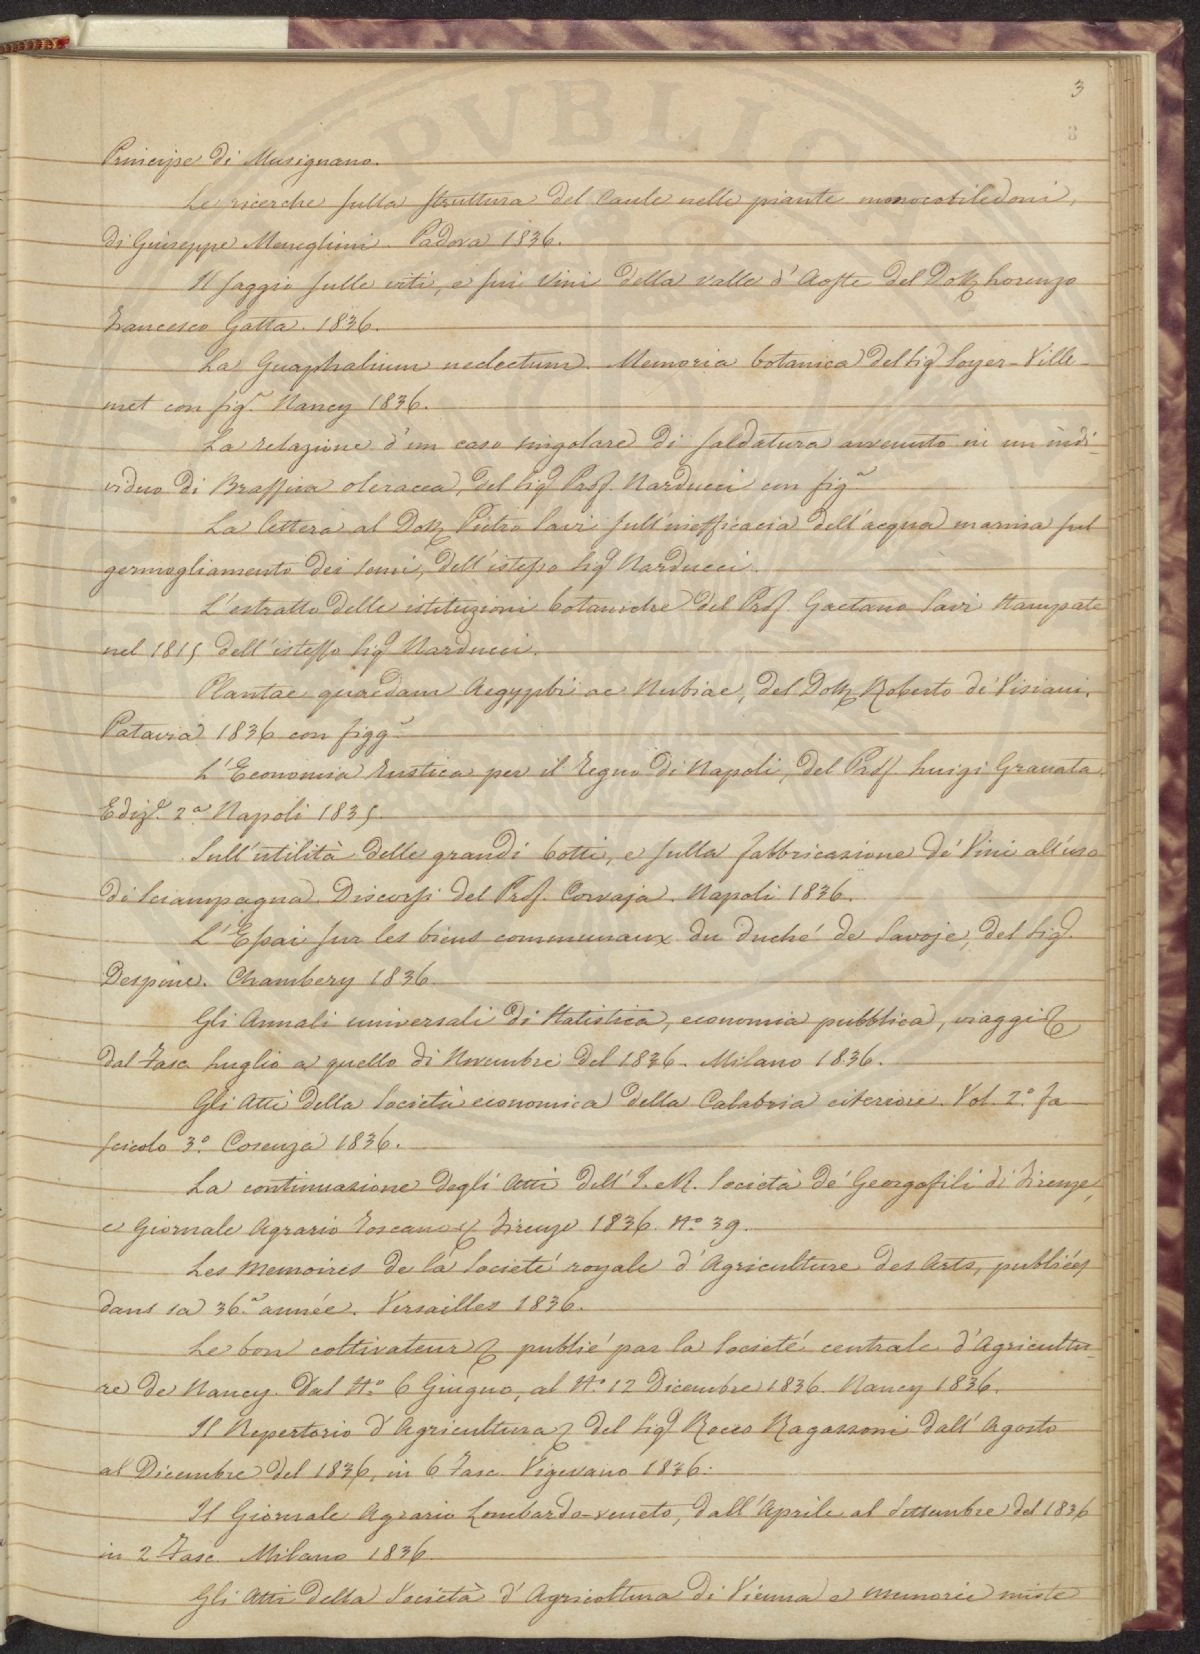 3
Principe di Musignano.
Le ricerche sulla struttura del Caule nelle piante monocotiledoni,
di Giuseppe Meneghini. Padova 1836.
Il saggio sulle viti, e sui Vini della valle d'Aoste del Dott. Lorenzo
Francesco Gatta. 1836.
La Gnaphalium neclectum. Memoria botanica del Sigr Soyer-Ville-
met con fig.e Nancy 1836.
La relazione d'un caso singolare di saldatura avvenuto in un indi-
viduo di Brassica oleracea, del Sigr Prof. Narducci con fig.e
La lettera al Dott. Pietro Savi sull'inefficacia dell'acqua marina sul
germogliamento dei semi, dell'istesso Sigr Narducci.
L'estratto delle istituzioni botaniche del Prof. Gaetano Savi stampate
nel 1815 dell'istesso Sigr Narducci.
Plantae quaedam Aegypti ac Nubiae, del Dott. Roberto de' Visiani.
Patavia 1836 con figg.e
L'Economia rustica per il regno di Napoli, del Prof. Luigi Granata.
Ediz.e 2a Napoli 1835.
Sull'utilità delle grandi botti, e sulla fabbricazione de' Vini all'uso
di Sciampagna. Discorsi del Prof. Corvaja. Napoli 1836.
L'Essai sur les biens communaux du duché de Savoje, del Sigr.
Despine. Chambery 1836.
Gli Annali universali di Statistica, economia pubblica, viaggi &
dal Fasc. Luglio a quello di Novembre del 1836. Milano 1836.
Gli Atti della Società economica della Calabria citeriore. Vol. 2.o fa
scicolo 3.o Cosenza 1836.
La continuazione degli Atti dell'I. e R. Società de' Georgofili di Firenze,
e Giornale Agrario Toscano & Firenze 1836. No. 39.
Les Memoires de la Societé royale d'Agriculture des Arts, publiées
dans sa 36.e année. Versailles 1836.
Le bon coltivateur & publié par la Societé centrale d'Agricultu-
re de Nancy. Dal No. 6 Giugno, al No. 12 Dicembre 1836. Nancy 1836.
Il Repertorio d'Agricultura & del Sigr Rocco Ragazzoni dall'Agosto
al Dicembre del 1836, in 6 Fasc. Vigevano 1836.
Il Giornale Agrario Lombardo-veneto, dall'Aprile al Settembre del 1836
in 2 Fasc. Milano 1836.
Gli Atti della Società d'Agricoltura di Vienna e memorie miste